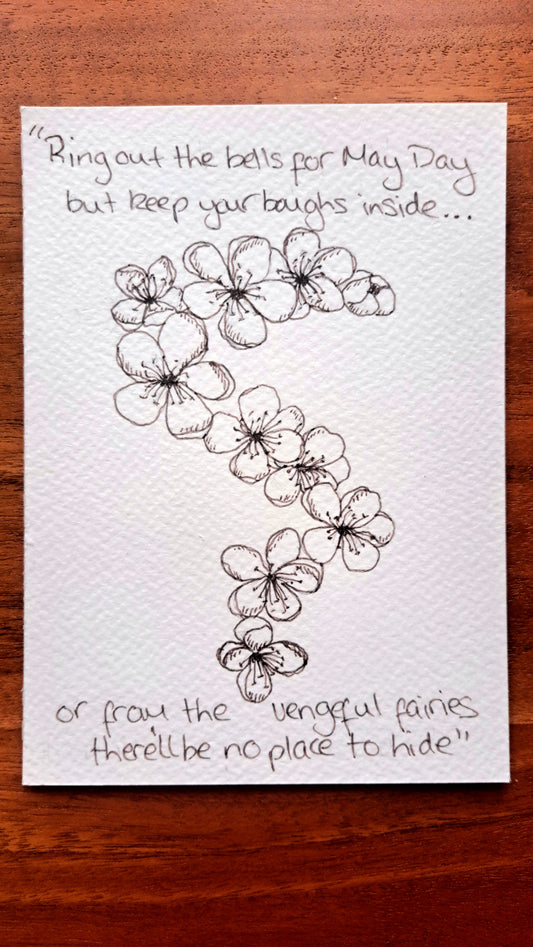 "Ring out the bells for May Day
but keep your boughs inside...
or from the vengeful fairies
there'll be no place to hide"